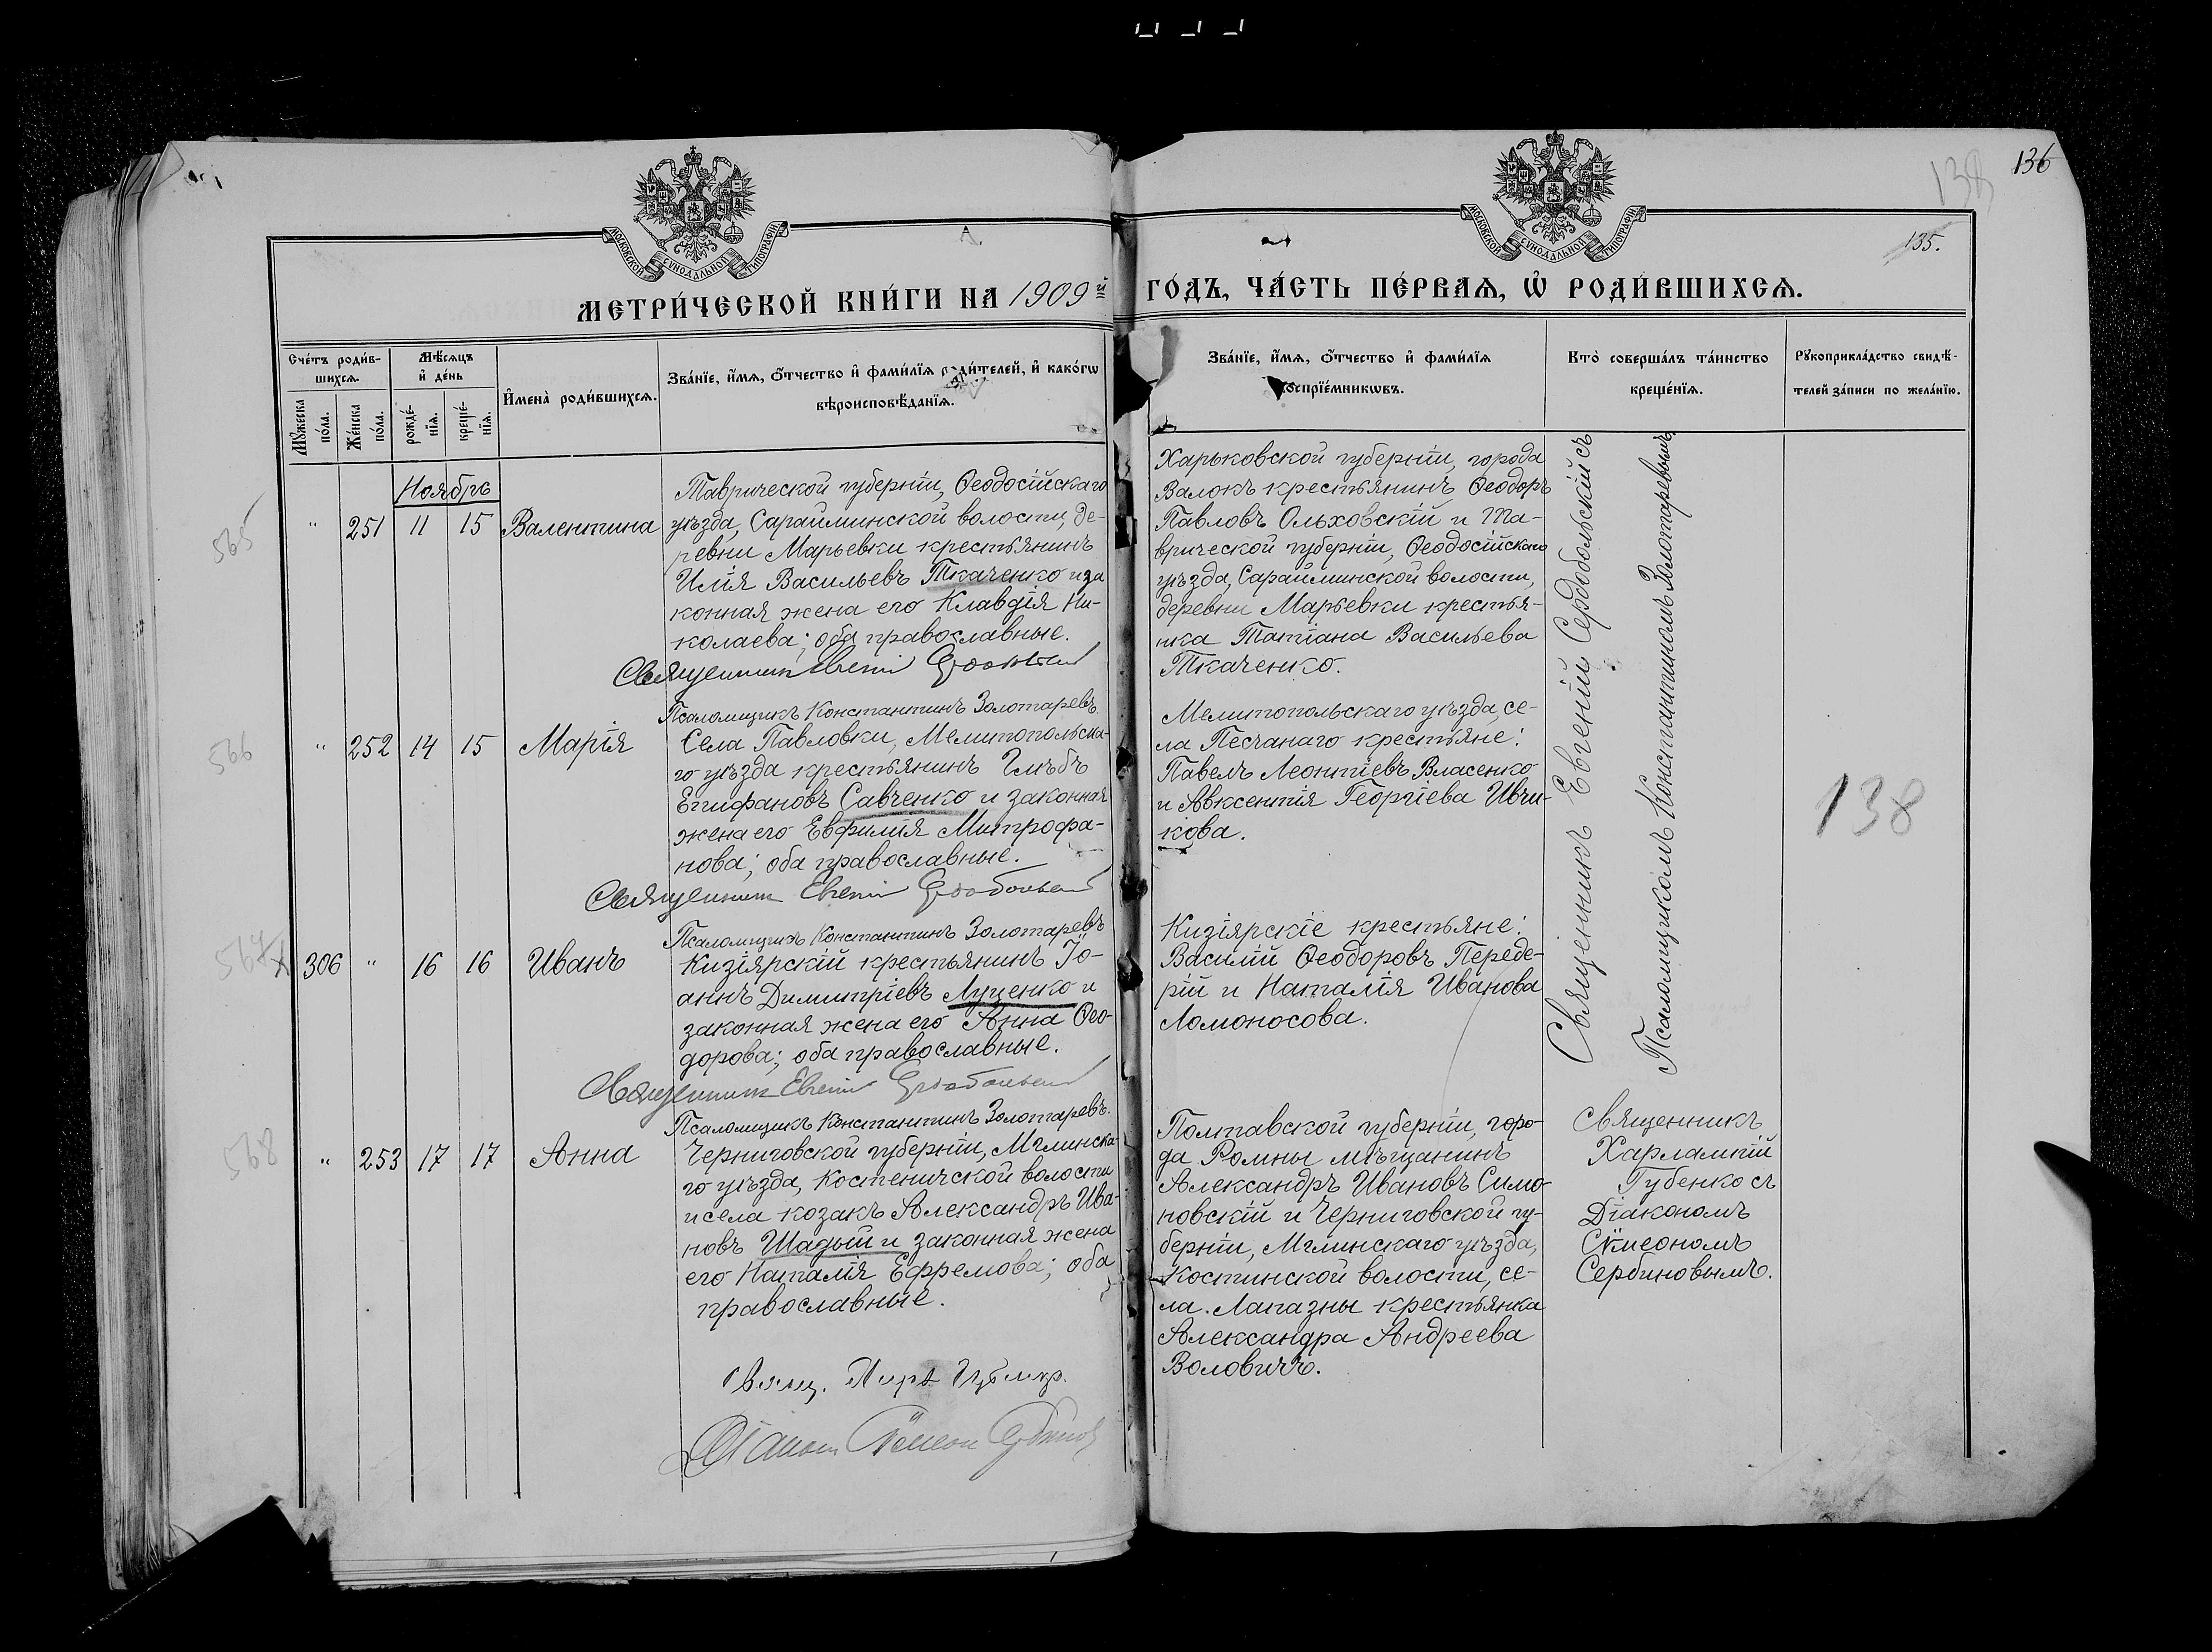 136
138
135.
МОСКОВСКОЙ СѴНОДАЛЬНОЙ ТИПОГРАФІИ
МОСКОВСКОЙ СѴНОДАЛЬНОЙ ТИПОГРАФІИ
МЕТРИ́ЧЕСКОЙ КНИ́ГИ НА 1909й ГО́ДЪ, ЧА́СТЬ ПЕ́РВАѦ, Ѡ҆ РОДИ́ВШИХСѦ.
Сче́тъ роди́в-
шихсѧ.
Мꙋ́жеска
по́ла.
Же́нска
по́ла.
Мѣ́сѧцъ
и҆ де́нь
рожде́-
нїѧ.
креще́-
нїѧ.
И҆мена̀ роди́вшихсѧ.
Зва́нїе, и҆́мѧ, ѻ҆́тчество и҆ фами́лїѧ роди́телей, и҆ како́гѡ
вѣроисповѣ́данїѧ.
Зва́нїе, и҆́мѧ, ѻ҆́тчество и҆ фами́лїѧ
воспрїе́мникѡвъ.
Кто̀ соверша́лъ та́инство
креще́нїѧ.
Рꙋкоприкла́дство свидѣ́-
телей за́писи по жела́нїю.
Ноябрь
565
" 251 11 15 Валентина
Таврической губерніи, Ѳеодосійскаго
уѣзда, Сарайминской волости, де-
ревни Марьевки крестьянинъ
Илія Васильевъ Ткаченко и за
конная жена его Клавдія Ни-
колаева; оба православные.
Священникъ Евгеній Сердобольскій
Псаломщикъ Константинъ Золотаревъ
Харьковской губерніи, города
Валокъ крестьянинъ Ѳеодоръ
Павловъ Ольховскій и Та-
врической губерніи, Ѳеодосійскаго
уѣзда, Сарайминской волости,
деревни Марьевки крестья-
нка Татіана Васильева
Ткаченко.
Священникъ Евгеній Сердобольскій съ
Псаломщикомъ Константиномъ Золотаревымъ
566
" 252 14 15 Марія
Села Павловки, Мелитопольска-
го уѣзда крестьянинъ Глѣбъ
Епифановъ Савченко и законная
жена его Евфимія Митрофа-
нова; оба православные.
Священникъ Евгеній Сердобольскій
Псаломщикъ Константинъ Золотаревъ
Мелитопольскаго уѣзда, се-
ла Песчанаго крестьяне:
Павелъ Леонтіевъ Власенко
и Авксентія Георгіева Ивчи-
кова.
138
567
306 " 16 16 Иванъ
Кизіярскій крестьянинъ Іо-
аннъ Димитріевъ Луценко и
законная жена его Анна Ѳео-
дорова; оба православные.
Священникъ Евгеній Сердобольскій
Псаломщикъ Константинъ Золотаревъ.
Кизіярскіе крестьяне:
Василій Ѳеодоровъ Переде-
рій и Наталія Иванова
Ломоносова.
568
" 253 17 17 Анна
Черниговской губерніи, Мглинска-
го уѣзда, Костеничской волости
и села козакъ Александръ Ива-
новъ Шадый и законная жена
его Наталія Ефремова; оба
православные.
Діаконъ Сѷмеонъ Сербиновъ
Полтавской губерніи, горо-
да Ромны мѣщанинъ
Александръ Ивановъ Симо-
новскій и Черниговской гу-
берніи, Мглинскаго уѣзда,
Костинской волости, се-
ла. Лапазны крестьянка
Александра Андреева
Воловичъ.
Священникъ
Харлампій
Губенко съ
Діакономъ
Сѷмеономъ
Сербиновымъ.